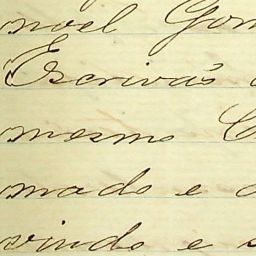 noel Gon
Escrivão
mesmo C
mado e
vindo e s